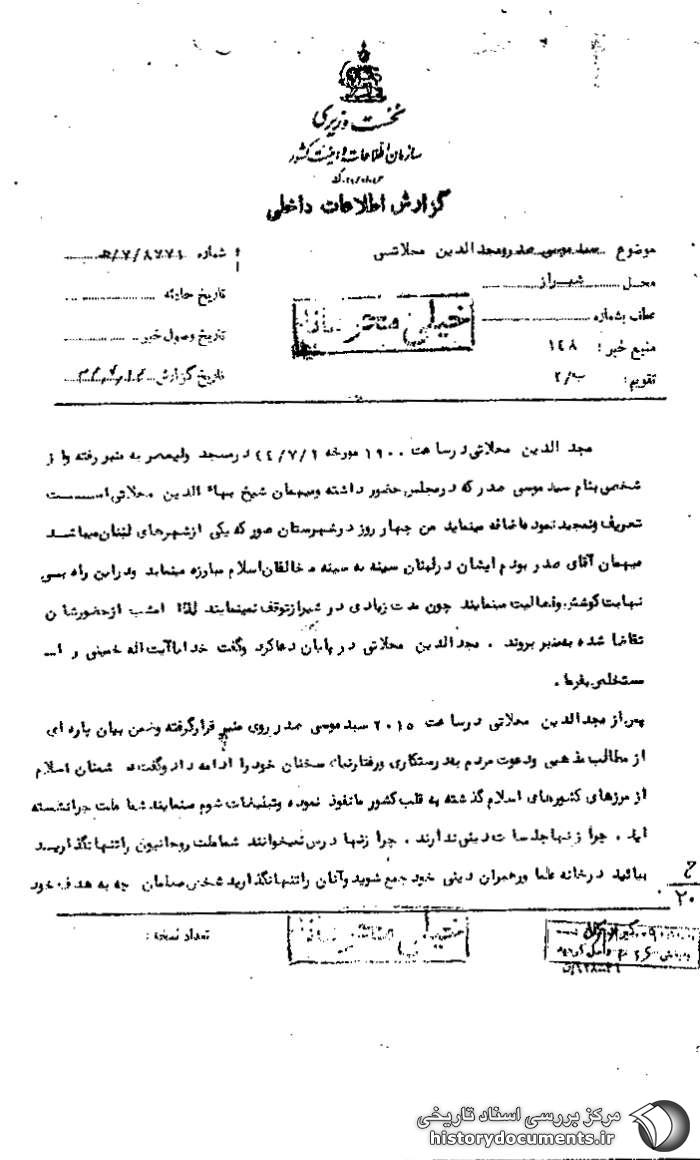 نخست وزیری
سازمان اطلاعات و امنیت کشور
گزارش اطلاعات داخلی
موضوع سید موسی صدر و مجد الدین محلاتی
شماره ۸۷۷۱/۷/ه
محل شیراز
تاریخ حادثه
خیلی محرمانه
عطف بشماره
تاریخ وصول خبر
منبع خبر : ۱٤۸
تاریخ گزارش
تقویم: ب/۲
مجد الدین محلاتی در ساعت ۱۹۰۰ مورخه ٤٤/۷/۲ در مسجد ولیعصر به منبر رفته و از
شخصی بنام سید موسی صدر که در مجلس حضور داشته و میهمان شیخ بهاء الدین محلاتی است
تعریف و تمجید نموده اضافه مینماید من چهار روز در شهرستان صور که یکی از شهرهای لبنان میباشد
میهمان آقای صدر بودم ایشان در لبنان سینه به سینه مخالفان اسلام مبارزه مینماید و در این راه بسی
نهایت کوشش و فعالیت مینمایند چون مدت زیادی در شیراز توقف نمینمایند لذا امشب از حضورشان
تقاضا شده به منبر بروند . مجد الدین محلاتی در پایان دعا کرد و گفت خدایا آیت اله خمینی را
مستخلص بفرما .
پس از مجد الدین محلاتی در ساعت ۲۰۱۵ سید موسی صدر روی منبر قرار گرفته و ضمن بیان پاره ای
از مطالب مذهبی و دعوت مردم بدرستکاری و رفتار نیک سخنان خود را ادامه داد و گفت دشمنان اسلام
از مرزهای کشورهای اسلام گذشته به قلب کشور ما نفوذ نموده و تبلیغات شوم مینمایند شما ملت چرا نشسته
اید . چرا زنها جلسات دینی ندارند . چرا زنها درس نمیخوانند شما ملت روحانیون را تنها نگذارید
بیائید در خانه علما و رهبران دینی خود جمع شوید و آنان را تنها نگذارید شخص مسلمان چه به هدف خود
ح
۲۰
تعداد نسخه :
خیلی محرمانه
مرکز بررسی اسناد تاریخی
historydocuments.ir